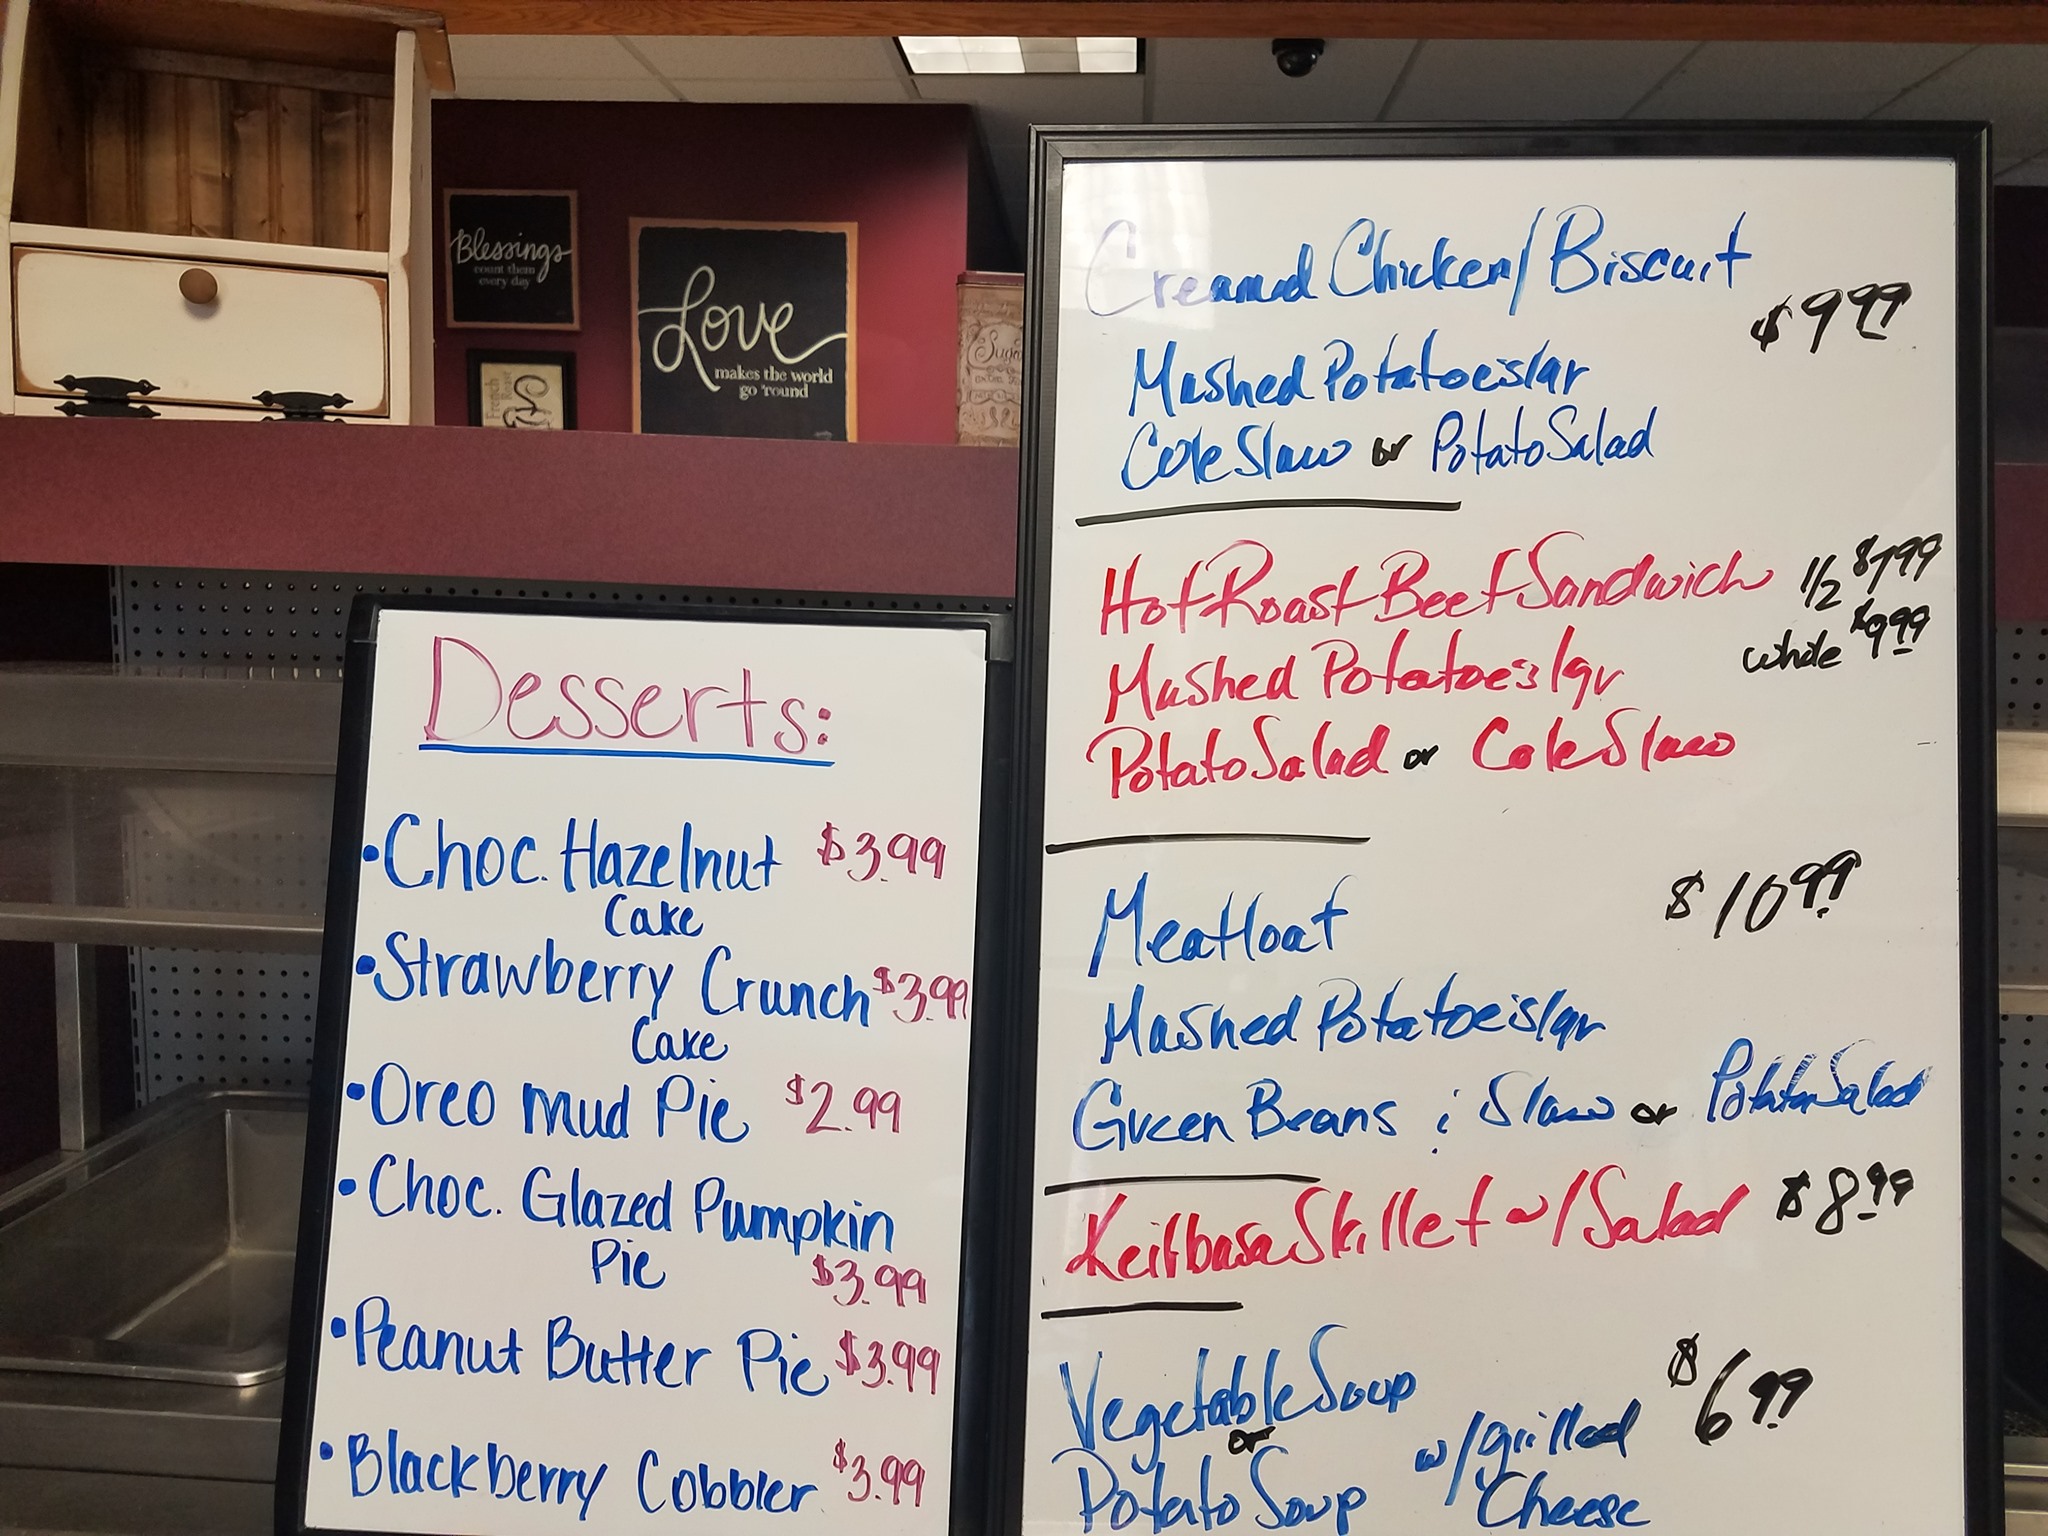 Blessings
count them
every day
Love
makes the world
go 'round
French
Roast
Sugar
Desserts:
•Choc. Hazelnut $3.99
Cake
•Strawberry Crunch $3.99
Cake
•Oreo mud Pie $2.99
•Choc. Glazed Pumpkin
Pie $3.99
•Peanut Butter Pie $3.99
•Blackberry Cobbler $3.99
Creamed Chicken/Biscuit
$9.99
Mashed Potatoes/gr
Cole Slaw or Potato Salad
Hot Roast Beef Sandwich 1/2 $7.99
whole $9.99
Mashed Potatoes/gr
Potato Salad or Cole Slaw
Meatloaf $10.99
Mashed Potatoes/gr
Green Beans ; Slaw or Potato Salad
Keilbasa Skillet w/Salad $8.99
Vegetable Soup $6.99
or
Potato Soup w/grilled
Cheese